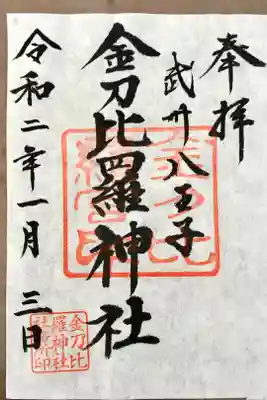 奉拝
武州八王子
金刀比羅神社
令和二年一月三日
金刀比
羅神社